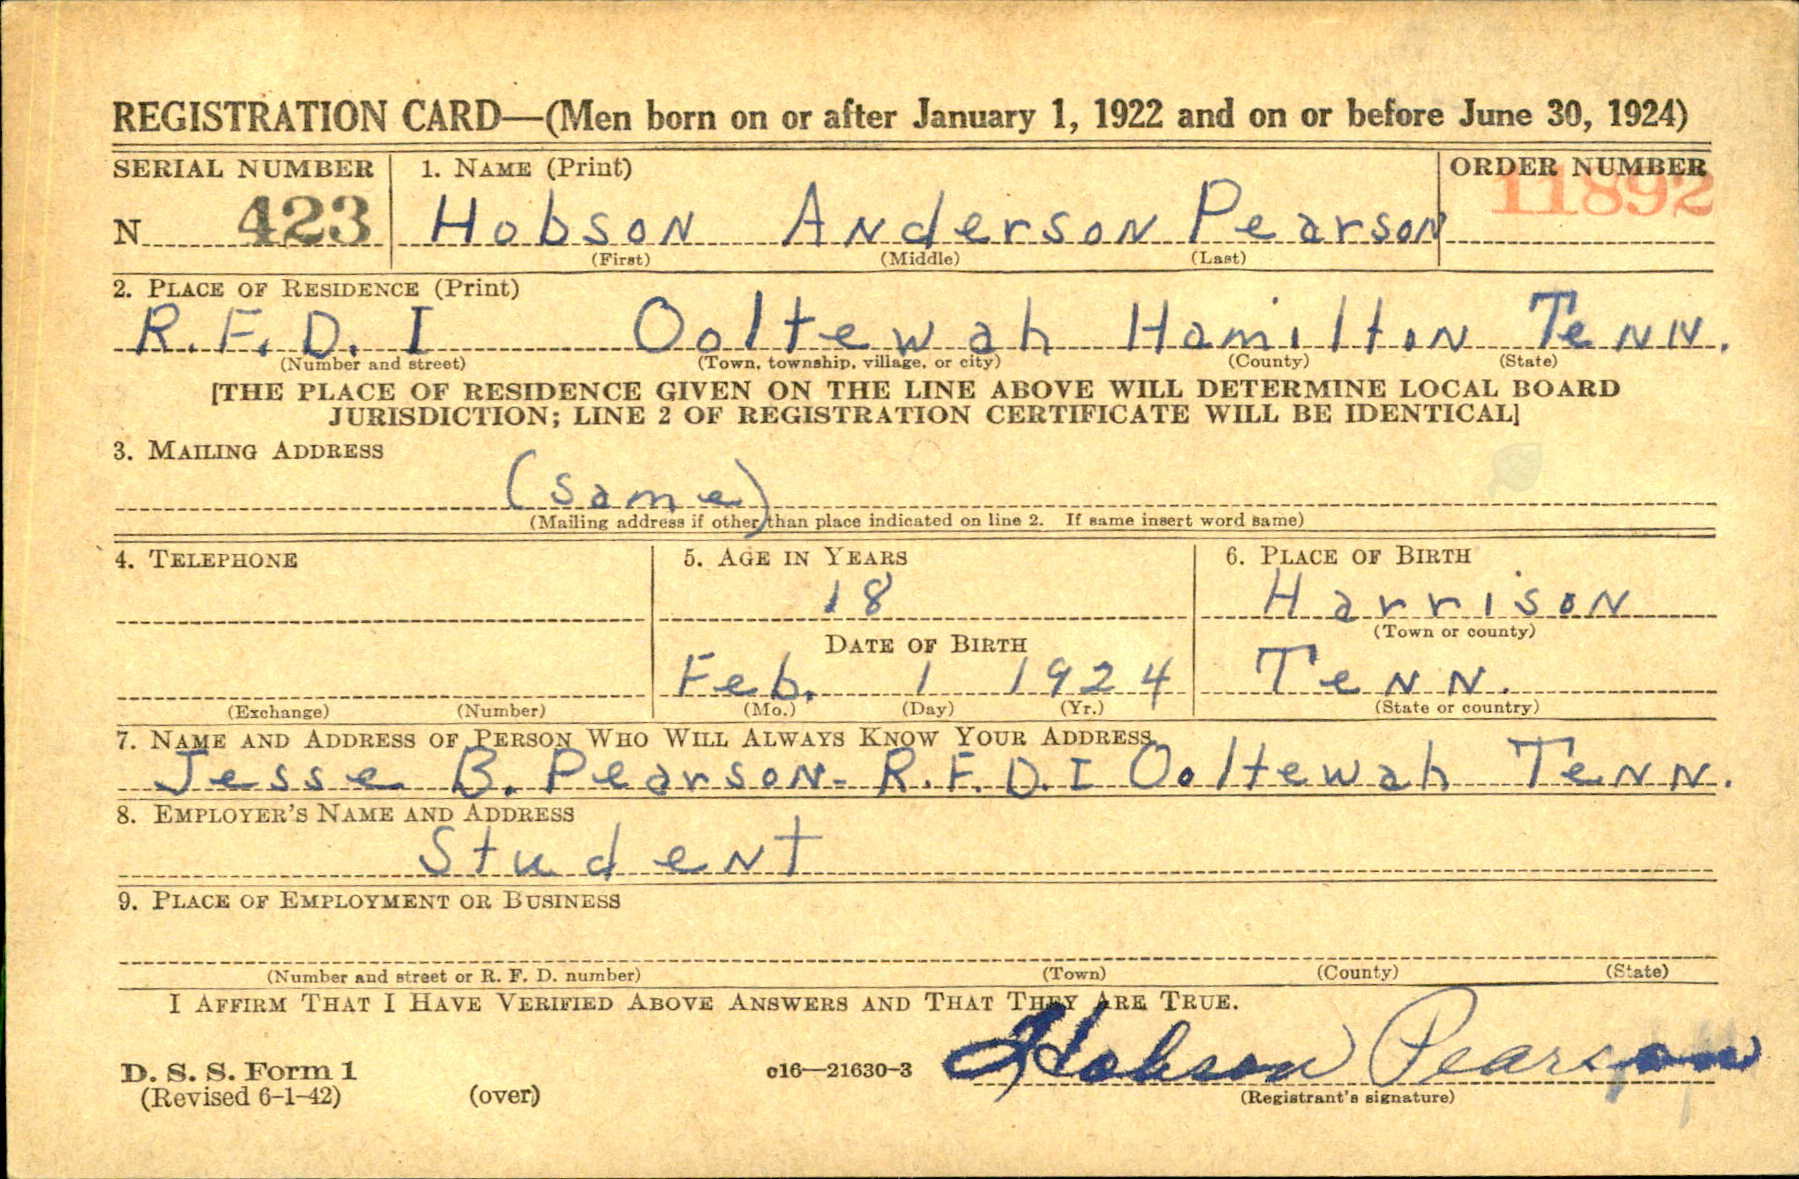 REGISTRATION CARD—(Men born on or after January 1, 1922 and on or before June 30, 1924)
SERIAL NUMBER 1. NAME (Print) ORDER NUMBER
11892
N 423 Hobson Anderson Pearson
(First) (Middle) (Last)
2. PLACE OF RESIDENCE (Print)
R.F.D. I Ooltewah Hamilton Tenn.
(Number and street) (Town, township, village, or city) (County) (State)
[THE PLACE OF RESIDENCE GIVEN ON THE LINE ABOVE WILL DETERMINE LOCAL BOARD
JURISDICTION; LINE 2 OF REGISTRATION CERTIFICATE WILL BE IDENTICAL]
3. MAILING ADDRESS
(same)
(Mailing address if other than place indicated on line 2. If same insert word same)
4. TELEPHONE 5. AGE IN YEARS 6. PLACE OF BIRTH
18 Harrison
(Town or county)
DATE OF BIRTH
Feb. 1 1924 Tenn.
(Exchange) (Number) (Mo.) (Day) (Yr.) (State or country)
7. NAME AND ADDRESS OF PERSON WHO WILL ALWAYS KNOW YOUR ADDRESS
Jesse B. Pearson- R.F.D. I Ooltewah Tenn.
8. EMPLOYER'S NAME AND ADDRESS
Student
9. PLACE OF EMPLOYMENT OR BUSINESS
(Number and street or R. F. D. number) (Town) (County) (State)
I AFFIRM THAT I HAVE VERIFIED ABOVE ANSWERS AND THAT THEY ARE TRUE.
Hobson Pearson
D. S. S. Form 1 c16—21630-3
(Revised 6-1-42) (over) (Registrant's signature)